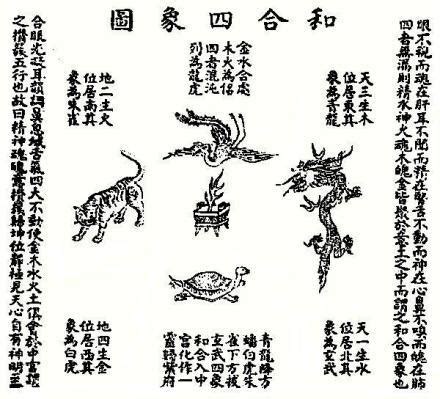 和合四象圖
眼不視而魂在肝耳不聞而精在腎舌不動而神在心鼻不嗅而魄在肺
四者無漏則精水神火魂木魄金皆聚於意土之中而謂之和合四象也
天三生木
位居東其
象為青龍
金水合處
木火為侶
四者混沌
列為龍虎
地二生火
位居南其
象為朱雀
天一生水
位居北其
象為玄武
青龍降方
蟠伯虎朱
雀下方棲
玄武四象
和合入中
宮化作一
靈歸紫府
地四生金
位居西其
象為白虎
含眼光凝耳韻調鼻息緘舌氣四大不動使金木水火土俱會於中宮謂
之攢簇五行也故曰精神魂魄意攢簇歸坤位靜極見天心自有神明至